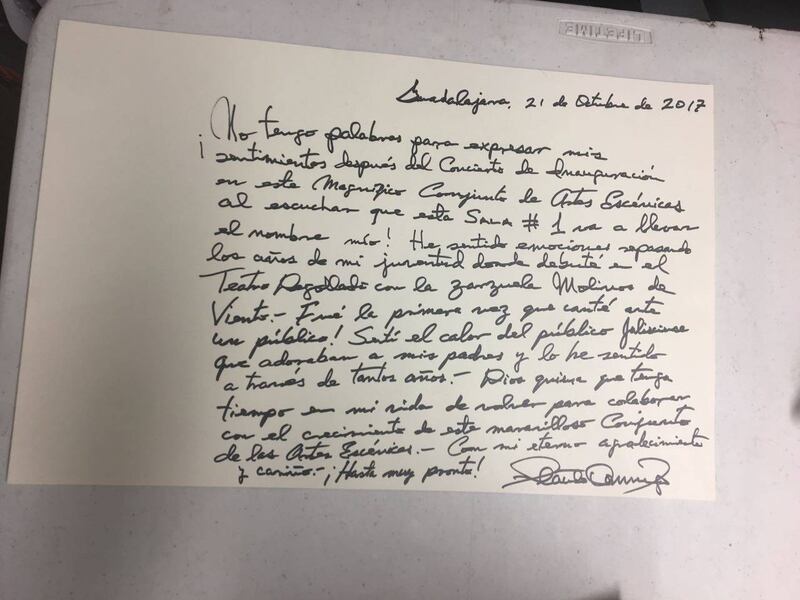 LIFETIME
Guadalajara, 21 de Octubre de 2017
¡No tengo palabras para expresar mis
sentimientos después del Concierto de Inauguración
en este Magnífico Conjunto de Artes Escénicas
al escuchar que esta Sala # 1 va a llevar
el nombre mío! He sentido emociones repasando
los años de mi juventud donde debuté en el
Teatro Degollado con la zarzuela Molinos de
Viento.- Fué la primera vez que canté ante
un público! Sentí el calor del público Jalisciense
que adoraban a mis padres y lo he sentido
a través de tantos años.- Dios quiera que tenga
tiempo en mi vida de volver para colaborar
con el crecimiento de este maravilloso Conjunto
de las Artes Escénicas.- Con mi eterno agradecimiento
y cariño.- ¡Hasta muy pronto!